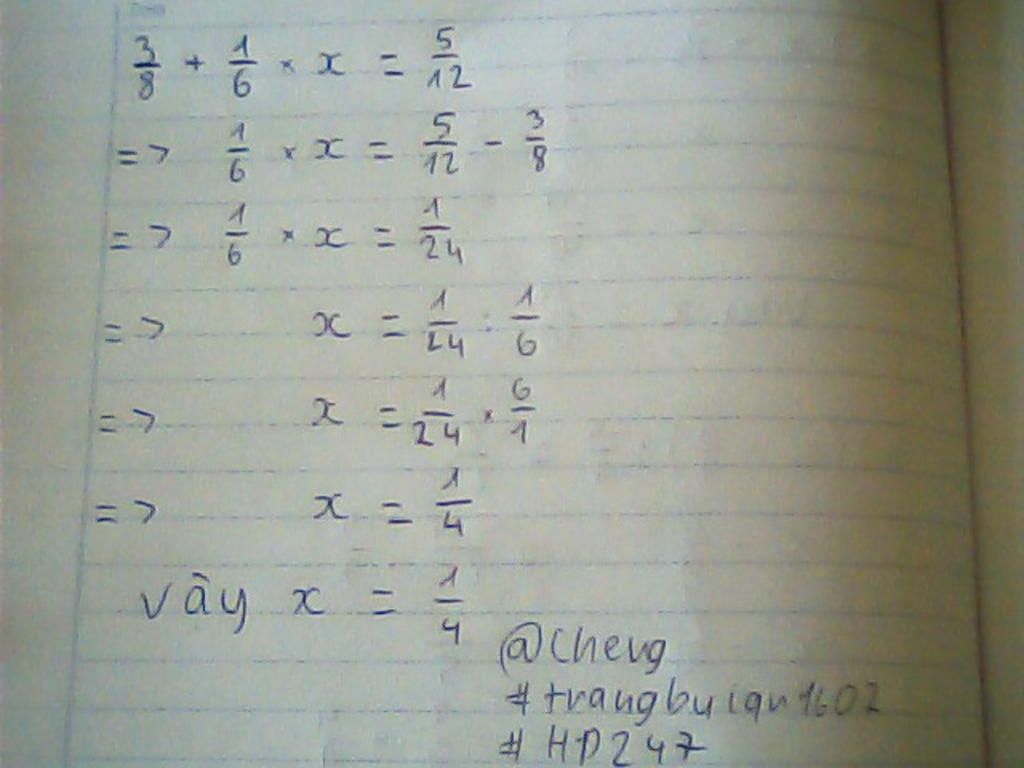 3/8 + 1/6 × x = 5/12
=> 1/6 × x = 5/12 - 3/8
=> 1/6 × x = 1/24
=> x = 1/24 : 1/6
=> x = 1/24 × 6/1
=> x = 1/4
vày x = 1/4
@Cheng
#trangbuiqn1602
#HD247